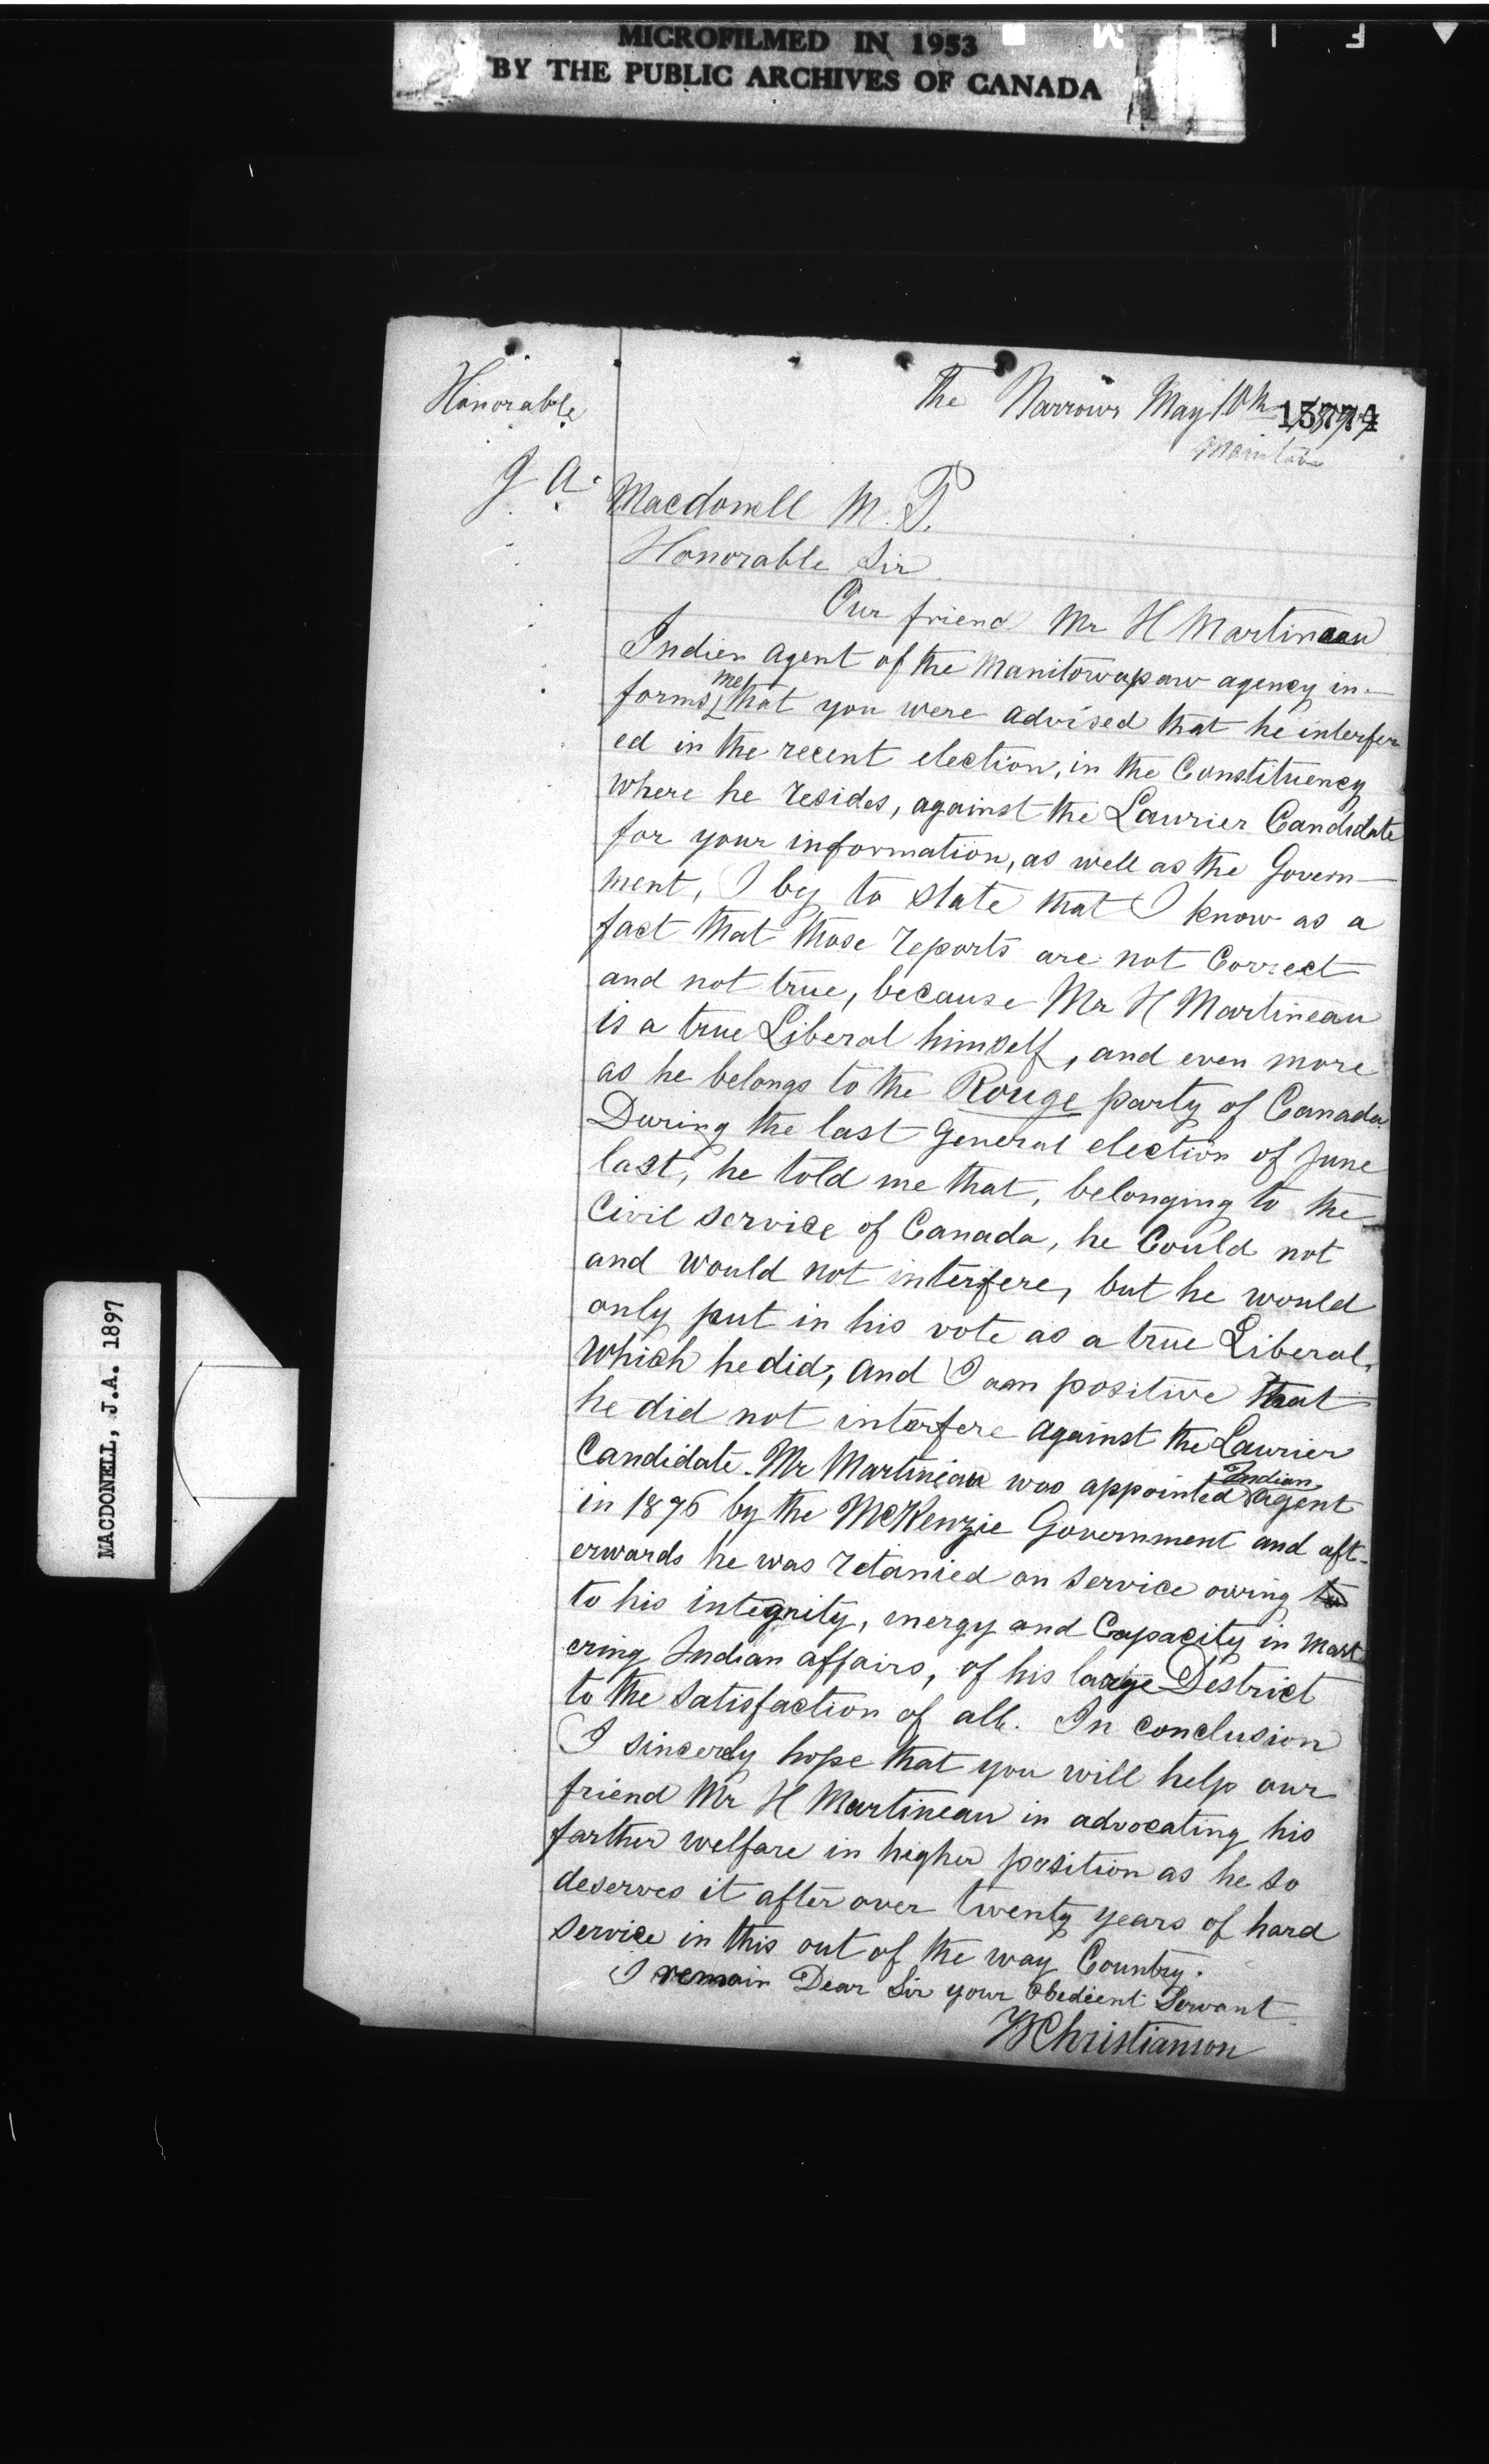 MICROFILMED IN 1953
BY THE PUBLIC ARCHIVES OF CANADA
MACDONELL, J.A. 1897
15774
The Narrows May 10th 1897
Manitoba
Honorable
J A. Macdonell M.P.
Honorable Sir
Our friend Mr H Martineau
Indien agent of the Manitowapaw agency in-
forms me that you were advised that he interfer
ed in the recent election, in the Constituency
where he resides, against the Laurier Candidate
for your information, as well as the Govern-
ment, I beg to state that I know as a
fact that those reports are not Correct
and not true, because Mr H Martineau
is a true Liberal himself, and even more
as he belongs to the Rouge party of Canada
During the last General election of June
last, he told me that, belonging to the
Civil service of Canada, he Could not
and would not interfere, but he would
only put in his vote as a true Liberal,
which he did, and I am positive that
he did not interfere against the Laurier
Candidate. Mr Martineau was appointed Indian agent
in 1876 by the McKenzie Government and aft-
erwards he was retanied on service owing to
to his integrity, energy and Capacity in mast
ering Indian affairs, of his large Destrict
to the satisfaction of all. In conclusion
I sincerely hope that you will help our
friend Mr H Martineau in advocating his
farther welfare in higher position as he so
deserves it after over twenty years of hard
service in this out of the way Country.
I remain Dear Sir your Obedient Servant
Christianson